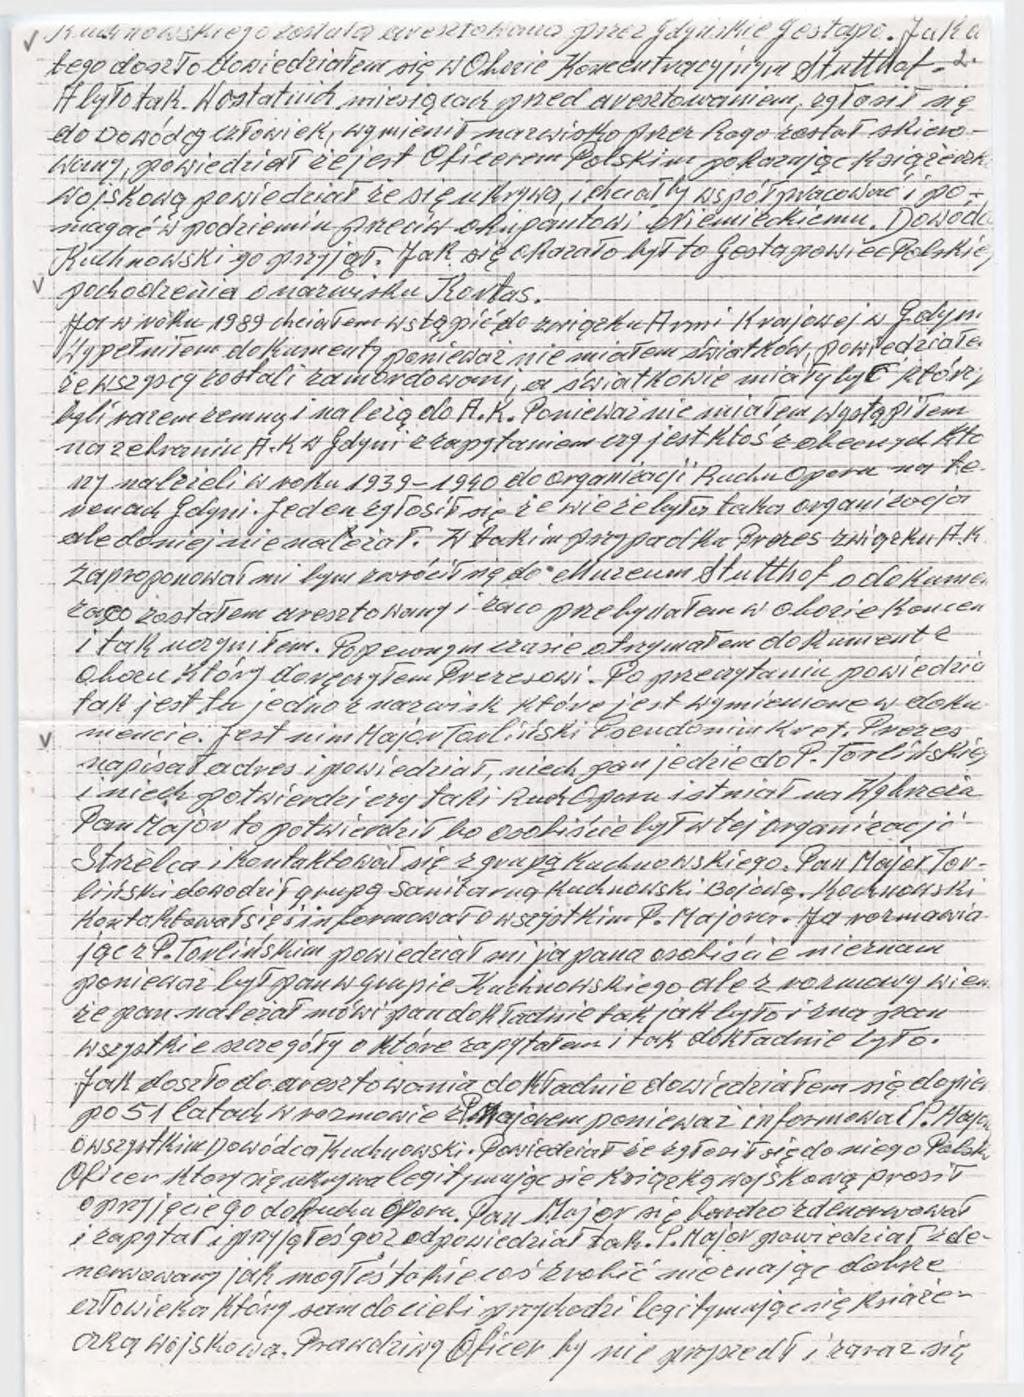 Kuchnowskiego została aresztowana przez Gdyńskie Gestapo. Jak do
2.
tego doszło dowiedziałem się w Obozie Koncentracyjnym Stutthof.
A było tak. W ostatnich miesiącach przed aresztowaniem, zgłosił się
do Dowódcy człowiek, wymienił nazwisko przez kogo został skiero-
wany, powiedział że jest Oficerem Polskim pokazując książeczk
wojskową powiedział że się ukrywa, i chciałby współpracować i po-
magać w podziemiu przeciw okupantowi Niemieckiemu. Dowódc
Kuchnowski go przyjął. Jak się okazało był to Gestapowiec Polskie
pochodzenia o nazwisku Kortas.
Ja w roku 1989 chciałem wstąpić do związku Armi Krajowej w Gdyni
Wypełniłem dokumenty ponieważ nie miałem świadków, powiedziałe
że wszyscy zostali zamordowani, a świadkowie miały być którzy
byli razem zemną i należą do A.K. Ponieważ nie miałem wystąpiłem
na zebraniu A.K w Gdyni z zapytaniem czy jest ktoś z obecnych kto
ry należeli w roku 1939-1940 do organizacji Ruchu Oporu na te-
renach Gdyni. Jeden zgłosił się że wie że była taka organizacja
ale do niej nie należał. W takim przypadku Prezes związku A.K.
zaproponował mi bym zwrócił się do Muzeum Stutthof o dokume
za co zostałem aresztowany i za co przebywałem w obozie Koncen
i tak uczyniłem. Po pewnym czasie otrzymałem dokument z
Obozu który doręczyłem Prezesowi. Po przeczytaniu powiedzia
tak jest tu jedno z nazwisk które jest wymienione w doku
mencie. Jest nim Major Torliński Pseudonim Kret. Prezes
napisał adres i powiedział, niech pan jedzie do P. Torlińskie
i niech potwierdzi czy taki Ruch Oporu istniał na Wybrzeżu
Pan Major to potwierdził bo osobiście był w tej organizacji
Strzelca i kontaktował się z grupą Kuchnowskiego. Pan Major Tor-
liński dowodził grupą sanitarną Kuchnowski Bojową. Kochnowski
kontaktował się i informował o wszystkim P. Majora. Ja rozmawia
jąc z P. Torlińskim powiedział mi ja pana osobiście nie znam
ponieważ był pan w grupie Kuchnowskiego ale z rozmowy wiem
że pan należał mówi pan dokładnie tak jak było i zna pan
wszystkie szczegóły o które zapytałem i tak dokładnie było.
Jak doszło do aresztowania dokładnie dowiedziałem się dopie
po 51 latach w rozmowie z P. Majorem ponieważ informował P. Majo
o wszystkim Dowódca Kuchnowski. Powiedział że zgłosił się do niego Polsk
Oficer który się ukrywa legitymując sie książką wojskową prosił
o przyjęcie go do Ruchu Oporu. Pan Major się bardzo zdenerwował
i zapytał i przyjąłeś go z odpowiedział tak. P. Major powiedział zde-
nerwowany jak mogłeś takie coś zrobić nieznając dobrze
człowieka który sam do ciebi przychodzi legitymując się książe-
czką wojskową. Prawdziwy Oficer by nie przyszedł i zaraz się